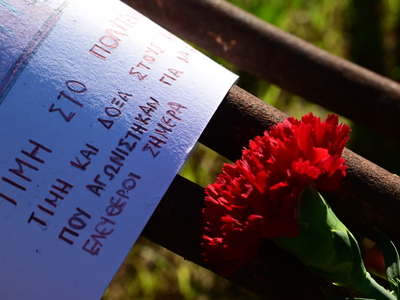 ΤΙΜΗ ΣΤΟ
ΤΙΜΗ ΚΑΙ ΔΟΞΑ ΣΤΟΥΣ
ΠΟΥ ΑΓΩΝΙΣΤΗΚΑΝ ΓΙΑ
ΕΛΕΥΘΕΡΟΙ ΣΗΜΕΡΑ